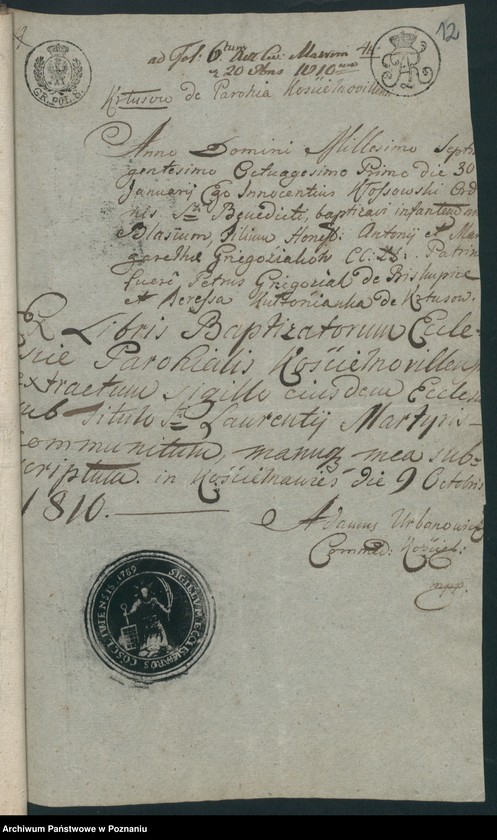 12
GR. POL. 8.
ad Fol: 6tum Act Civ: Matrim 44
20 Ans 1810
Krtusow de Parohia Kościelnovillensi
Anno Domini Millesimo Septin
gentesimo Octuagesimo Primo die 30
Januarij Ego Innocentius Kossowski Ord
nis Sti Benedicti, baptizavi infantem
Blasium, Filium Honest: Antonij et Mar
garethæ Grzegozialiow CC: LL: Patrin
fuere Petrus Grzegozial de Biskupice
et Teressa Antonianka de Krtusow.
Ex Libris Baptizatorum Eccle-
siæ Parohialis Kościelnovillensi
extractum sigillo eiusdem Ecclesiæ
sub Titulo Sti Laurentij Martyris
communitum, manuq mea sub-
scriptum. in Kościelnawieś die 9 Octobris
1810.
Adamus Urbanowicz
Commed: Kościel:
mpp.
SIGILLUM ECCLESIÆ PAROS COSCLWIENSIS 1789
Archiwum Państwowe w Poznaniu